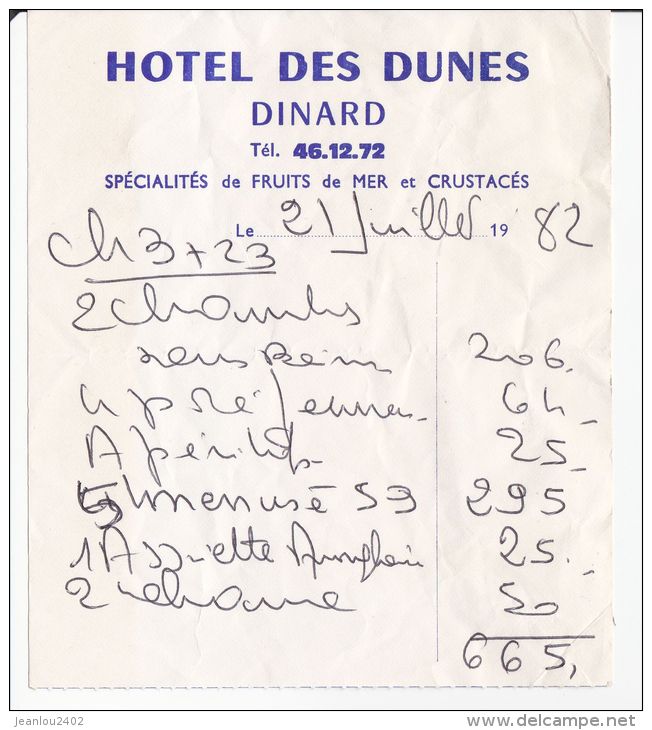 HOTEL DES DUNES
DINARD
Tél. 46.12.72
SPÉCIALITÉS de FRUITS de MER et CRUSTACÉS
Le 21 Juillet 19 82
Ch 3 + 23
2 Chambres
sans Bain 206.
4 pt déjeuners 64
Apéritifs 25
5 menus à 59 295
1 Assiette 25
2 50
665,
jeanlou2402
www.delcampe.net